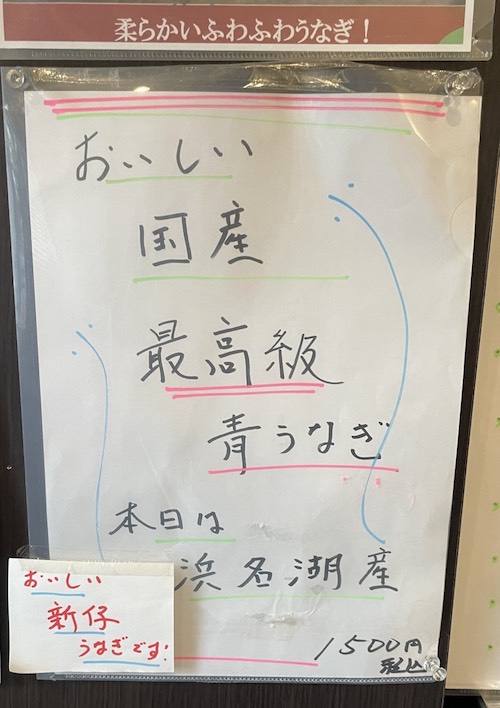 柔らかいふわふわうなぎ！
おいしい
国産
最高級
青うなぎ
本日は
浜名湖産
1500円
税込
おいしい
新仔
うなぎです!